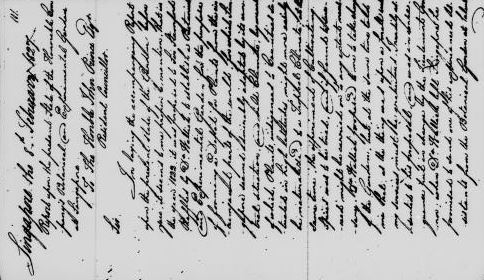 101.
Singapore the 8th February 1827.
Report upon the present State of the Honorable Com-
pany's Botanical and Experimental Garden
at Singapore
To The Honble John Prince Esqr
Resident Councillor.
Sir.
In laying the accompanying Report
upon the present state of the Garden before
you it seems to me proper to mention that in
the year 1822 it was proposed to Sir Stamford
Raffles by Dr Wallich to establish a Botanic
and Experimental Garden for the purpose
of forming a Depot for Plants from the
adjacent parts of the world, for which Sin-
gapore seemed admirably adapted by its cen-
tral situation, and mild Climate, by means
of which, Plants indigenous to Countries si-
tuated in high latitude, might more easily
be naturalised to a Tropical Climate, at the
same time the experiment of Cultivating
Spices was to be tried, and if found to
might be carried on to any extent neces-
sary. Dr Wallich proposed to me to take charge
of the Garden, but, at the same time told
me that, as the thing was upon a small
my services must be gratuitous. I readily as-
sented to his proposal, and was in conse-
quence put in charge by the Lieutenant Gover-
nor, when Dr Wallich left Singapore he
promised to send one of his experienced As-
sistants from the Botanical Garden at Cal